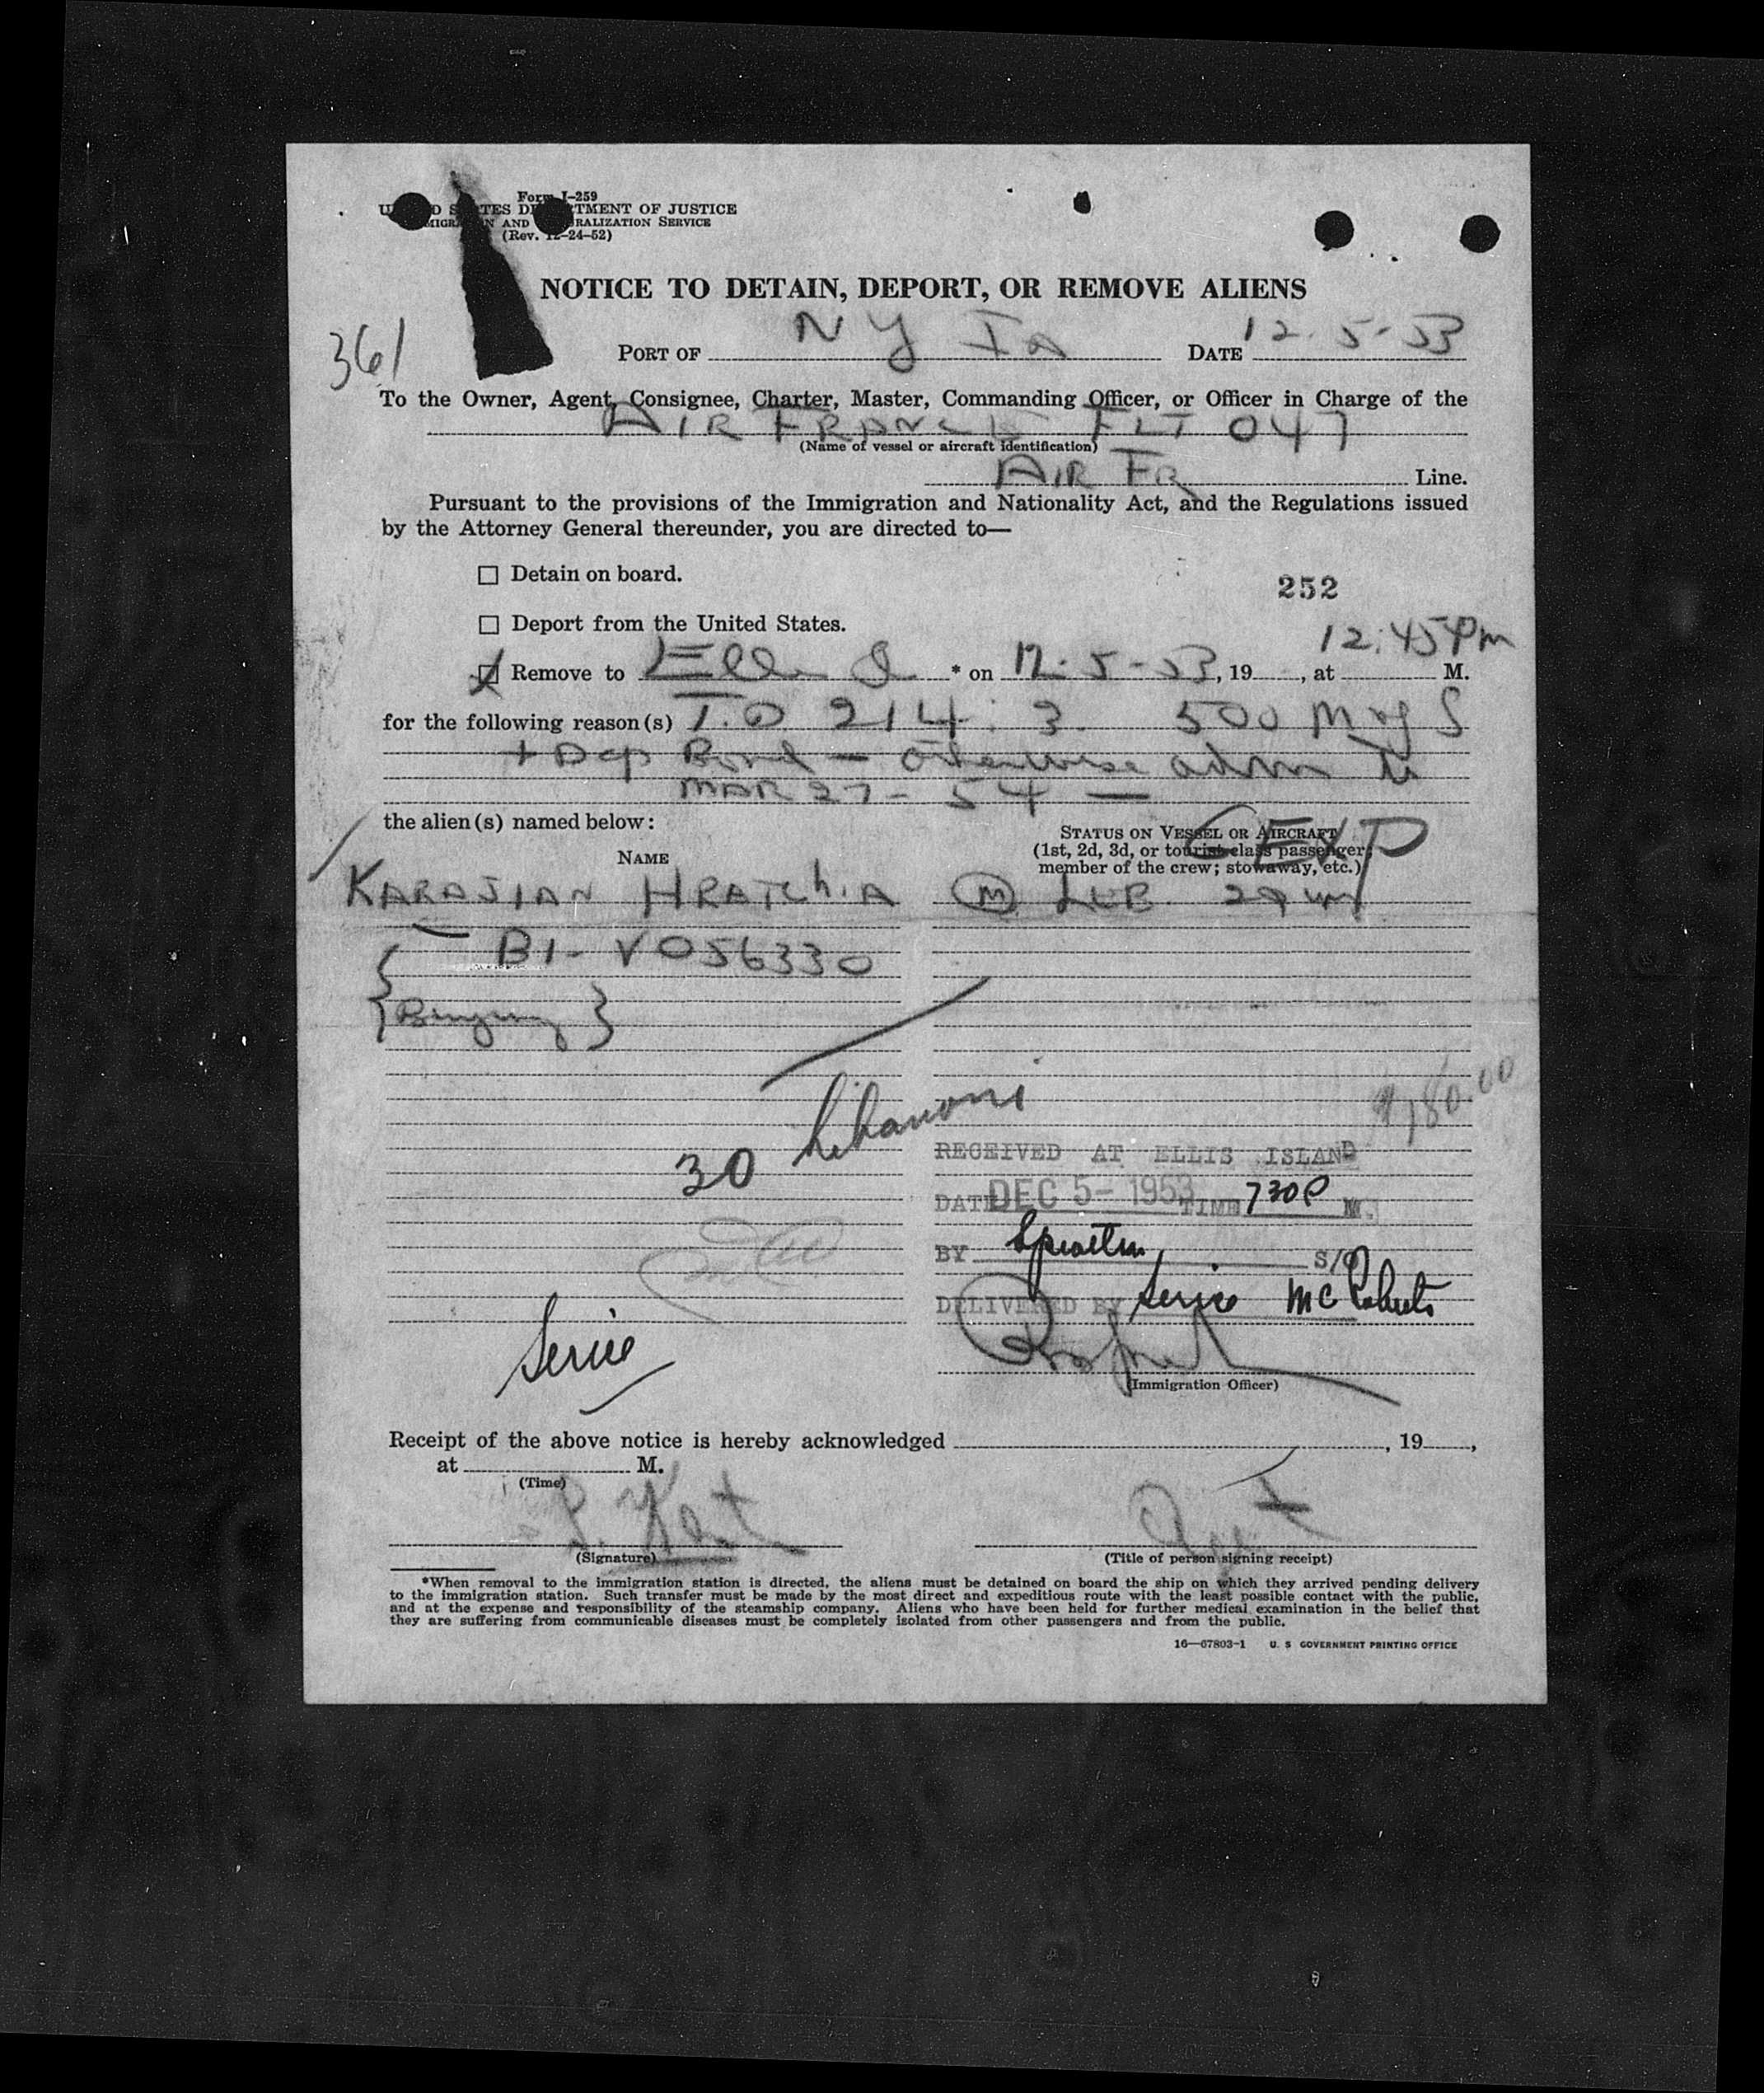 Form I-259
UNITED STATES DEPARTMENT OF JUSTICE
IMMIGRATION AND NATURALIZATION SERVICE
(Rev. 12-24-52)
NOTICE TO DETAIN, DEPORT, OR REMOVE ALIENS
361
PORT OF N Y I A DATE 12-5-53
To the Owner, Agent, Consignee, Charter, Master, Commanding Officer, or Officer in Charge of the
AIR FRANCE FLT 047
(Name of vessel or aircraft identification)
AIR FR Line.
Pursuant to the provisions of the Immigration and Nationality Act, and the Regulations issued
by the Attorney General thereunder, you are directed to—
☐ Detain on board.
252
☐ Deport from the United States.
12:45 Pm
☒ Remove to Ellis I * on 12-5-53, 19 , at M.
for the following reason(s) T.D 214.3. 500
+ Dep Bond — otherwise adm to
MAR 27-54 —
the alien(s) named below:
STATUS ON VESSEL OR AIRCRAFT
(1st, 2d, 3d, or tourist-class passenger;
member of the crew; stowaway, etc.)
NAME
KARAJIAN HRATCH.A (M) LEB 29
B1-V056330
$180.00
30 Libanon
RECEIVED AT ELLIS ISLAND
DATE DEC 5-1953 TIME 730P M.
BY S/O
DELIVERED BY Serico McRoberts
(Immigration Officer)
Receipt of the above notice is hereby acknowledged , 19 ,
at M.
(Time)
(Signature)
(Title of person signing receipt)
*When removal to the immigration station is directed, the aliens must be detained on board the ship on which they arrived pending delivery
to the immigration station. Such transfer must be made by the most direct and expeditious route with the least possible contact with the public,
and at the expense and responsibility of the steamship company. Aliens who have been held for further medical examination in the belief that
they are suffering from communicable diseases must be completely isolated from other passengers and from the public.
16—67803-1 U. S GOVERNMENT PRINTING OFFICE